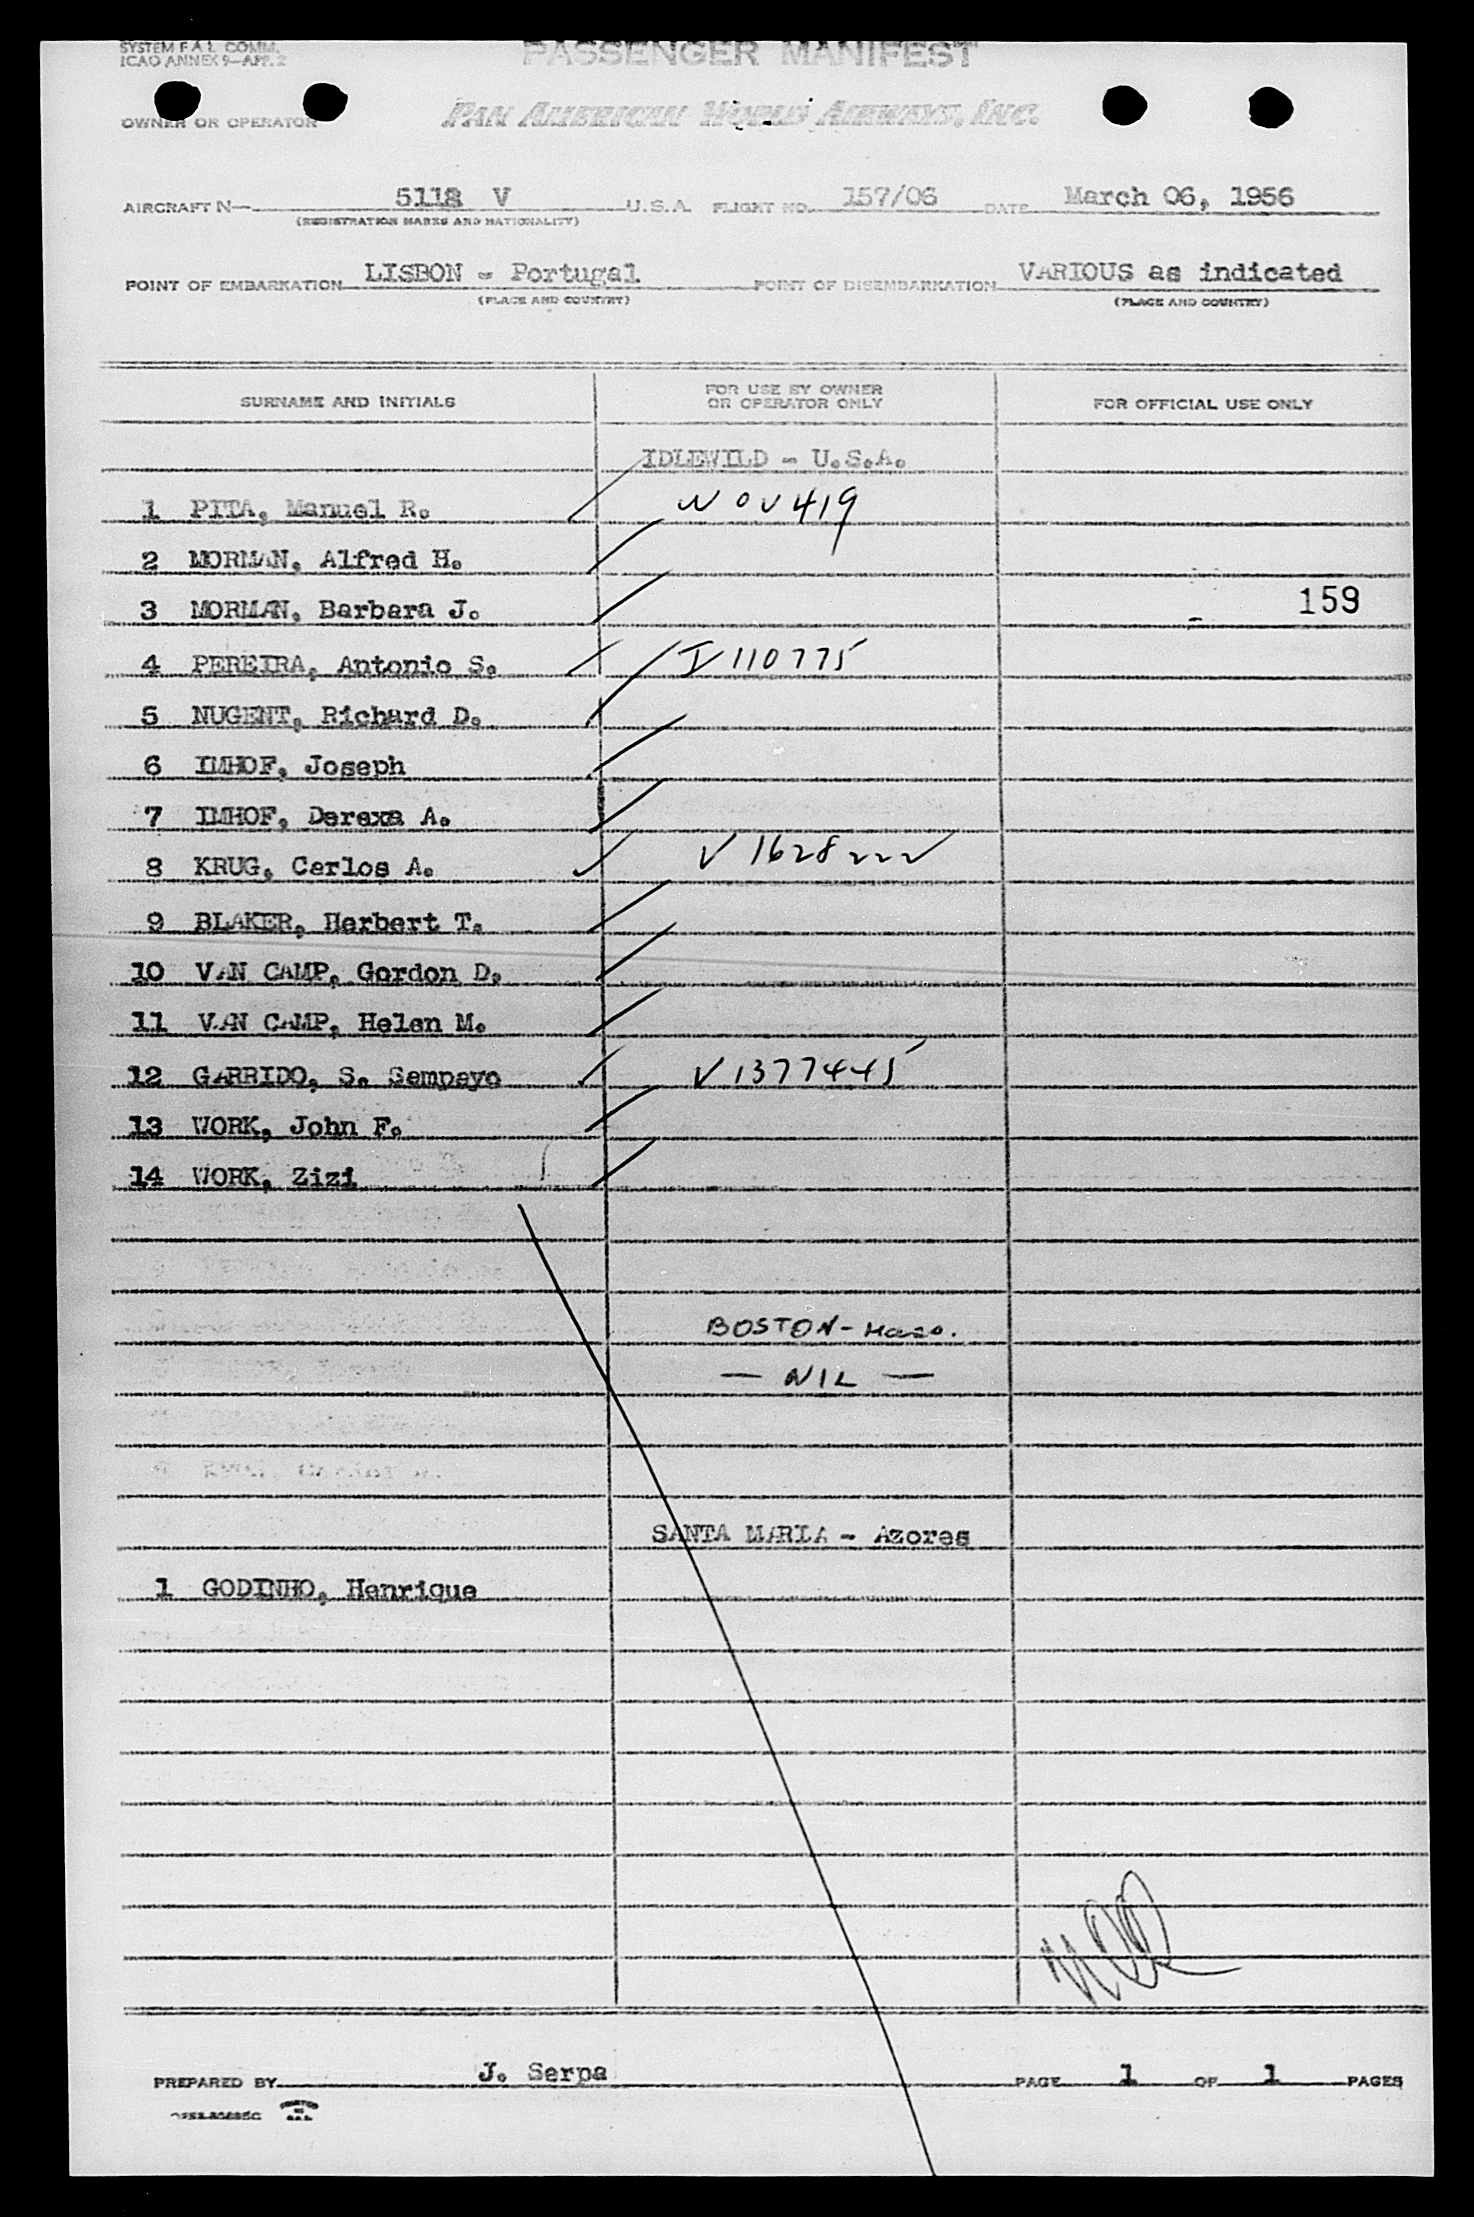 SYSTEM F.A.L. COMM.
ICAO ANNEX 9—APP. 2
PASSENGER MANIFEST
OWNER OR OPERATOR
PAN AMERICAN WORLD AIRWAYS, INC.
AIRCRAFT N— 5118 V U.S.A. FLIGHT NO. 157/06 DATE March 06, 1956
(REGISTRATION MARKS AND NATIONALITY)
POINT OF EMBARKATION LISBON - Portugal POINT OF DISEMBARKATION VARIOUS as indicated
(PLACE AND COUNTRY) (PLACE AND COUNTRY)
SURNAME AND INITIALS FOR USE BY OWNER OR OPERATOR ONLY FOR OFFICIAL USE ONLY
IDLEWILD - U.S.A.
1 PITA, Manuel R.
2 MORMAN, Alfred H.
3 MORMAN, Barbara J. 159
4 PEREIRA, Antonio S. 110775
5 NUGENT, Richard D.
6 IMHOF, Joseph
7 IMHOF, Derexa A.
8 KRUG, Carlos A. V 1628222
9 BLAKER, Herbert T.
10 VAN CAMP, Gordon D.
11 VAN CAMP, Helen M.
12 GARRIDO, S. Sampayo V1377445
13 WORK, John F.
14 WORK, Zizi
BOSTON - Mass.
— NIL —
SANTA MARIA - Azores
1 GODINHO, Henrique
PREPARED BY J. Serpa PAGE 1 OF 1 PAGES
PRINTED IN U.S.A.